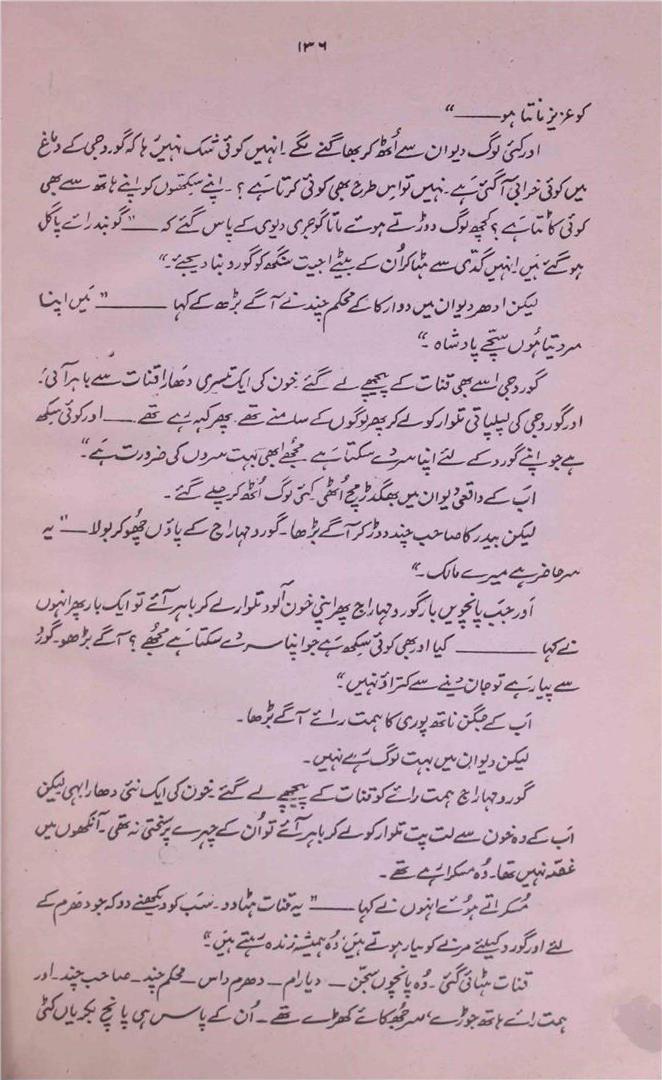 ۱۳۶
کو عزیز مانتا ہو ——— “
اور کئی لوگ دیوان سے اُٹھ کر بھاگنے لگے۔ انہیں کوئی شک نہیں رہا کہ گورو جی کے دماغ
میں کوئی خرابی آ گئی ہے۔ نہیں تو اس طرح بھی کوئی کرتا ہے؟۔ اپنے سکھوں کو اپنے ہاتھ سے بھی
کوئی کاٹتا ہے؟ کچھ لوگ دوڑتے ہوئے ماتا گوجری دیوی کے پاس گئے کہ ——— ”گوبند رائے پاگل
ہو گئے ہیں۔ انہیں گدّی سے ہٹا کر اُن کے بیٹے اجیت سنگھ کو گورو بنا دیجئے۔“
لیکن ادھر دیوان میں دوارکا کے محکم چند نے آگے بڑھ کے کہا ——— ”میں اپنا
سر دیتا ہُوں سچّے پادشاہ۔“
گورو جی اسے بھی قنات کے پیچھے لے گئے۔ خون کی ایک تیسری دھارا قنات سے باہر آئی۔
اور گورو جی کی لپلپاتی تلوار کو لے کر پھر لوگوں کے سامنے تھے۔ پھر کہہ رہے تھے ——— اور کوئی سکھ
ہے جو اپنے گورو کے لئے اپنا سر دے سکتا ہے۔ مجھے ابھی بہت سروں کی ضرورت ہے“۔
اب کے واقعی دیوان میں بھگدڑ مچ اُٹھی۔ کئی لوگ اُٹھ کر چلے گئے۔
لیکن بیدر کا صاحب چند دوڑ کر آگے بڑھا۔ گورو مہاراج کے پاؤں چھُو کر بولا ——— ”یہ
سر حاضر ہے میرے مالک۔“
اور جب پانچویں بار گورو مہاراج پھر اپنی خون آلود تلوار لے کر باہر آئے تو ایک بار پھر انہوں
نے کہا ——— کیا اور بھی کوئی سکھ ہے جو اپنا سر دے سکتا ہے مجھے؟ آگے بڑھو۔ گورُ
سے پیار ہے تو جان دینے سے کتراؤ نہیں“۔
اب کے جگن ناتھ پوری کا ہمت رائے آگے بڑھا۔
لیکن دیوان میں بہت لوگ رہے نہیں۔
گورو مہاراج ہمت رائے کو قنات کے پیچھے لے گئے۔ خون کی ایک نئی دھارا بہی لیکن
اب کے وہ خون سے لت پت تلوار کو لے کر باہر آئے تو اُن کے چہرے پر سختی نہ تھی۔ آنکھوں میں
غصّہ نہیں تھا۔ وُہ مسکرا رہے تھے۔
مُسکراتے ہوئے انہوں نے کہا ——— ”یہ قنات ہٹا دو۔ سب کو دیکھنے دو کہ جو دھرم کے
لئے اور گورو کیلئے مرنے کو تیار ہوتے ہیں وُہ ہمیشہ زندہ رہتے ہیں“۔
قنات ہٹائی گئی۔ وُہ پانچوں سجّن — دیا رام — دھرم داس — محکم چند — صاحب چند — اور
ہمت رائے ہاتھ جوڑے، سر جھکائے کھڑے تھے۔ اُن کے پاس ہی پانچ بکریاں کٹی